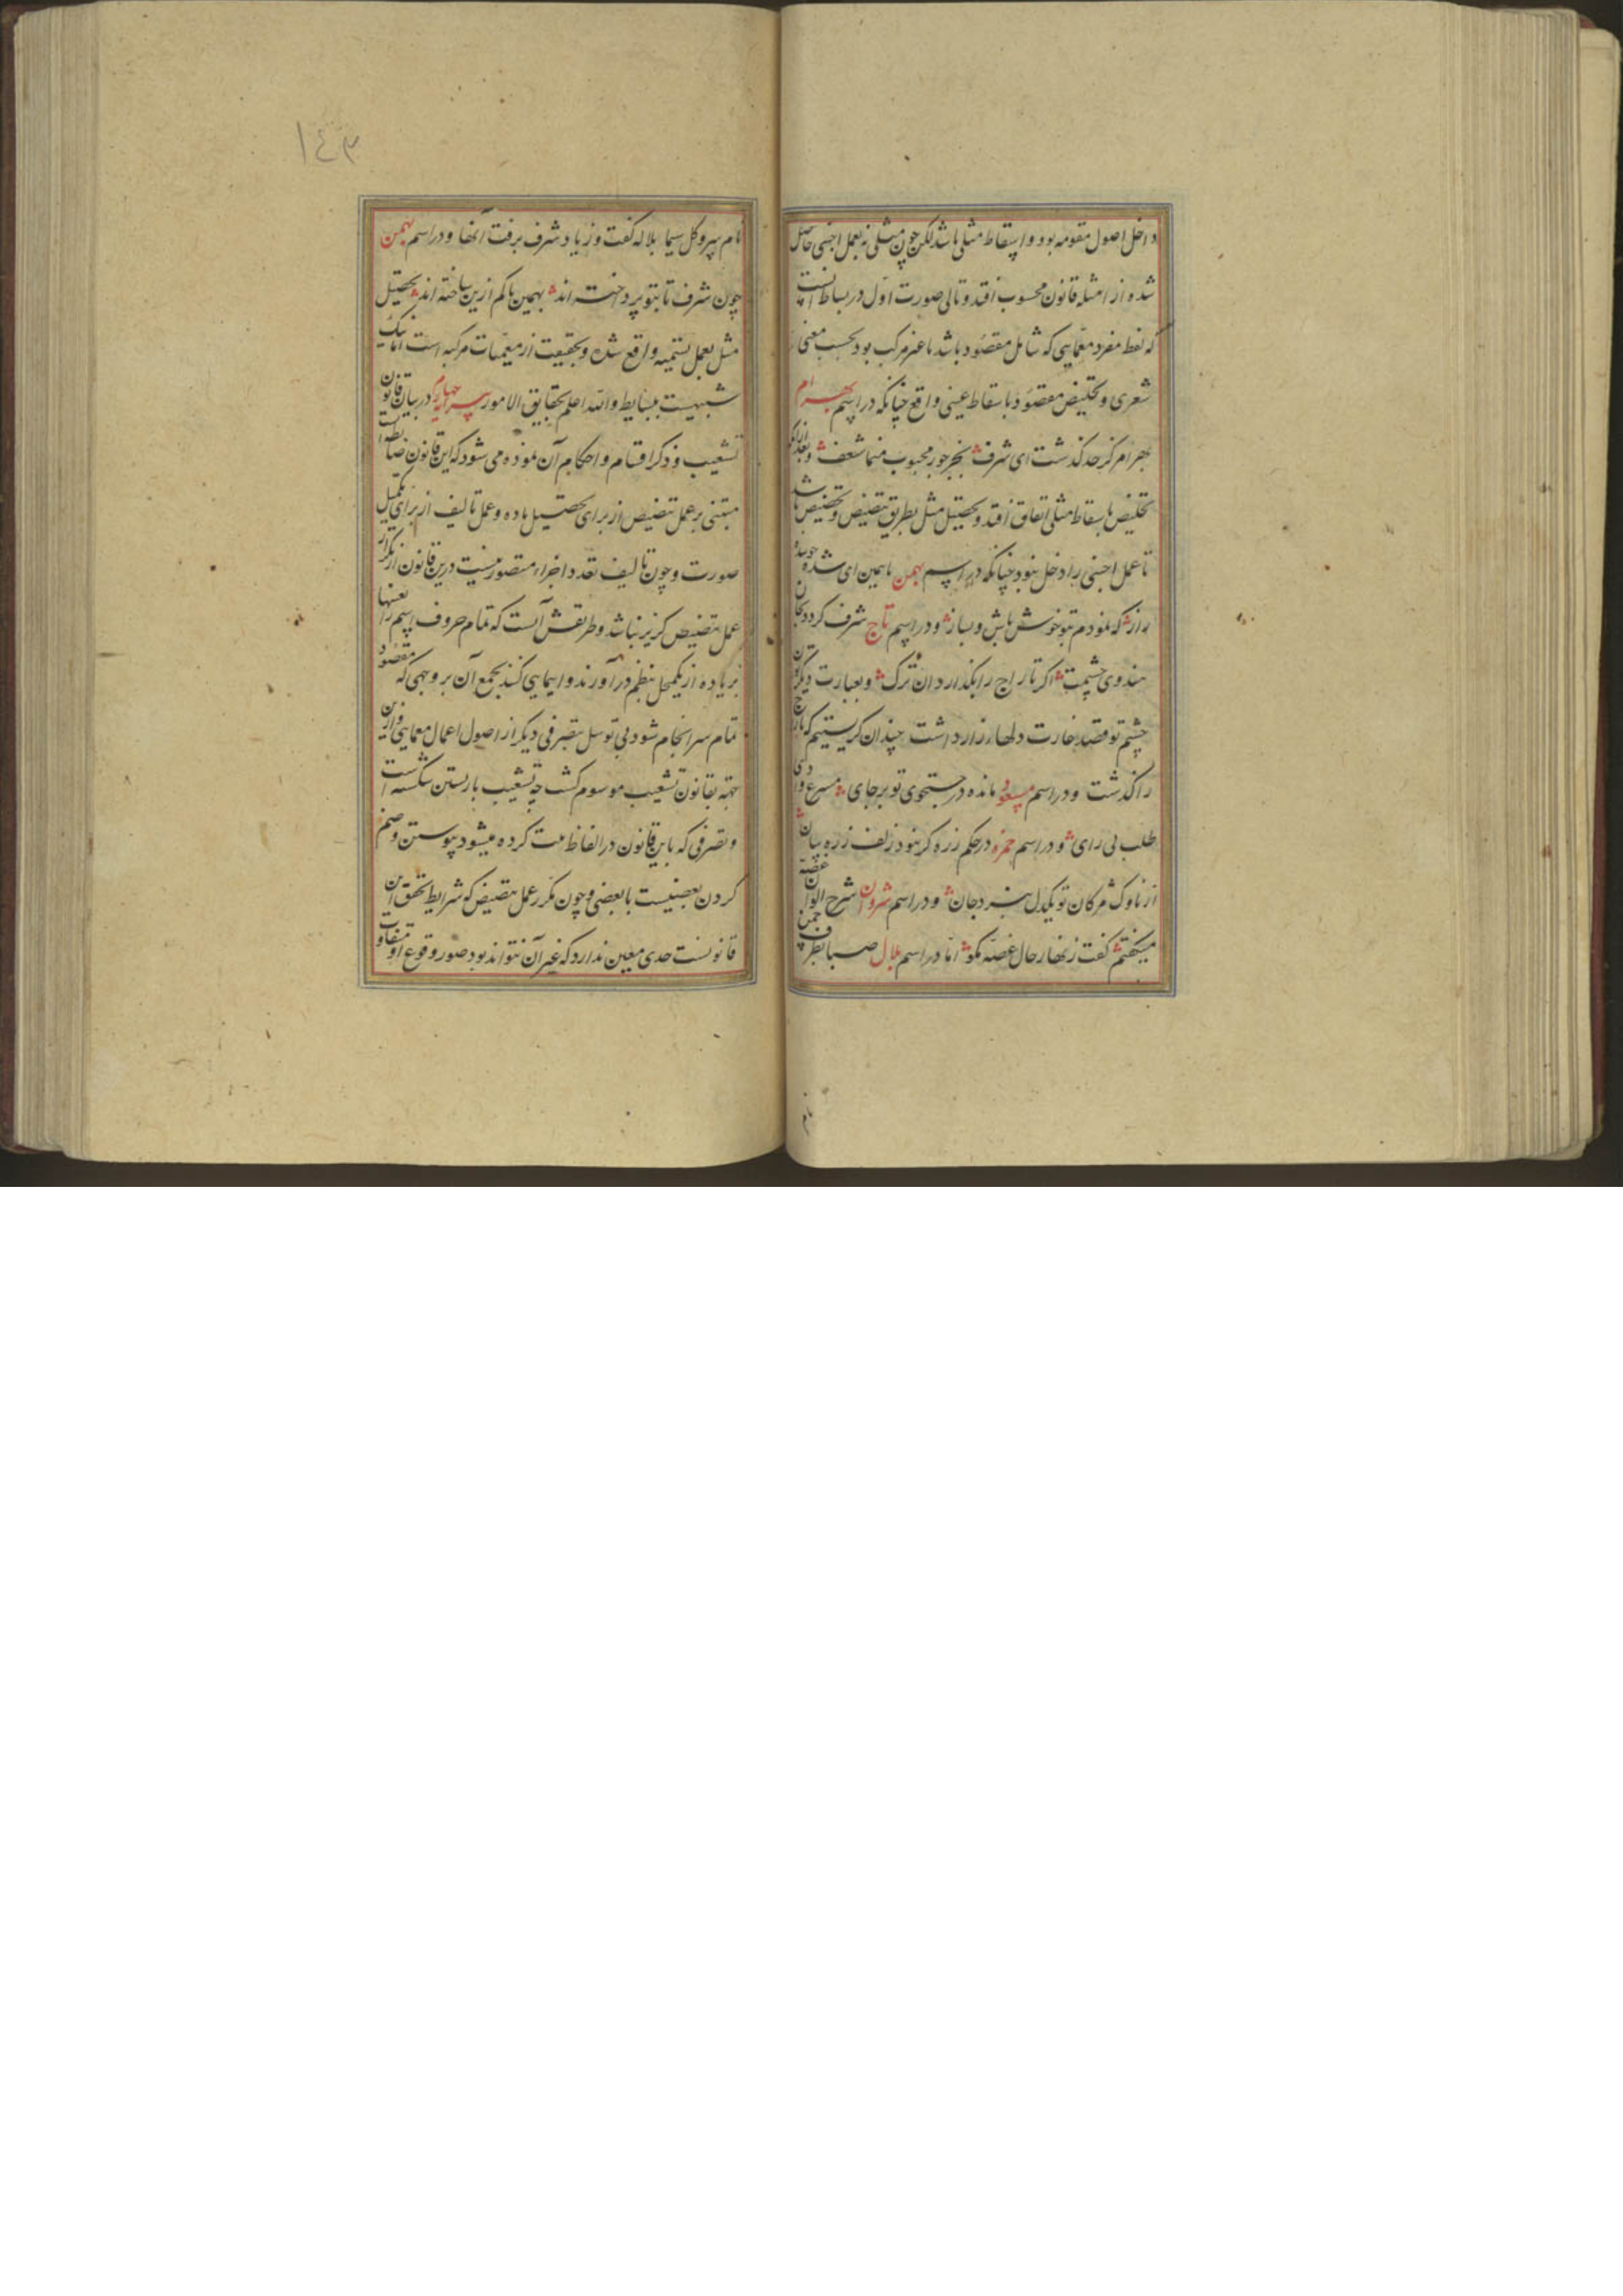 داخل اصول مقومه بود و اسقاط مثلی باشد لکن چون مثلی نه بعمل اجنبی حاصل
شده از امثله قانون محسوب افتد و تالی صورت اول در بساطت آنست
که لفظ مفرد معمایی که شامل مقصود باشد با غیر مرکب بود بحسب معنی
شعری و تخلیص مقصود باسقاط عینی واقع چنانکه در اسم بهرام
بهرام کز حد گذشت ای شرف بجز جور محبوب منما شعف و بعد ازانکه
تخلیص باسقاط مثلی اتفاق افتد و تحصیل مثل بطریق تنصیص و تخصیص باشد
تا عمل اجنبی را دخل نبود چنانکه در اسم بهمن باهمین ای شده جوینده
راز که نمودم بتو خوش باش و بساز و در اسم تاج شرف کردد
هندوی چشمت اکر تاراج را بگذارد آن ترک و بعبارت دیگر
چشم تو قصد غارت دلهاء زار داشت چندان گریستیم که تاراج
را گذشت و در اسم مسعود مانده در جستجوی تو بر جای مسرع وادی
طلب بی رای و در اسم حمزه در حکم زره گر نبود زلف زره سان
از ناوک مژگان تو یکدل نبرد جان و در اسم شروان شرح الوان غصه
میگفتم گفت زنهار حال غصه مگو اما در اسم بلال صبا بطرف چمن
١٤٣
نام سرو گل سیما بلاله گفت و زیاد شرف برفت آنها و در اسم بهمن
چون شرف تا بتو پرداخته اند بهمین با کم ازین ساخته اند تحصیل
مثل بعمل تسمیه واقع شده و بحقیقت از معمیات مرکبه است اما نیک
شبیهست ببسایط والله اعلم بحقایق الامور پیرایه چهارم در بیان قانون
تشعیب و ذکر اقسام و احکام آن نموده می شود که این قانون ضابطه است
مبتنی بر عمل تنصیص از برای تحصیل ماده و عمل تالیف از برای تکمیل
صورت و چون تالیف تعدد اجزاء متصور نیست درین قانون از تکرار
عمل تنصیص گزیر نباشد و طریقش آنست که تمام حروف اسم را بعینها
بزیاده از یکمحل بنظم در آورند و ایمایی کنند بجمع آن بر وجهی که مقصود
تمام سرانجام شود بی توسل بتصرفی دیگر از اصول اعمال معمایی و ازین
جهة بقانون تشعیب موسوم گشت چه تشعیب باز بستن شکسته است
و تصرفی که باین قانون در الفاظ بیت کرده میشود پیوستن و ضم
کردن بعضیست با بعضی و چون مکرر عمل تنصیص که شرایط تحقق این
قانونست حدی معین ندارد که غیر آن نتواند بود صور وقوع او متفاوت